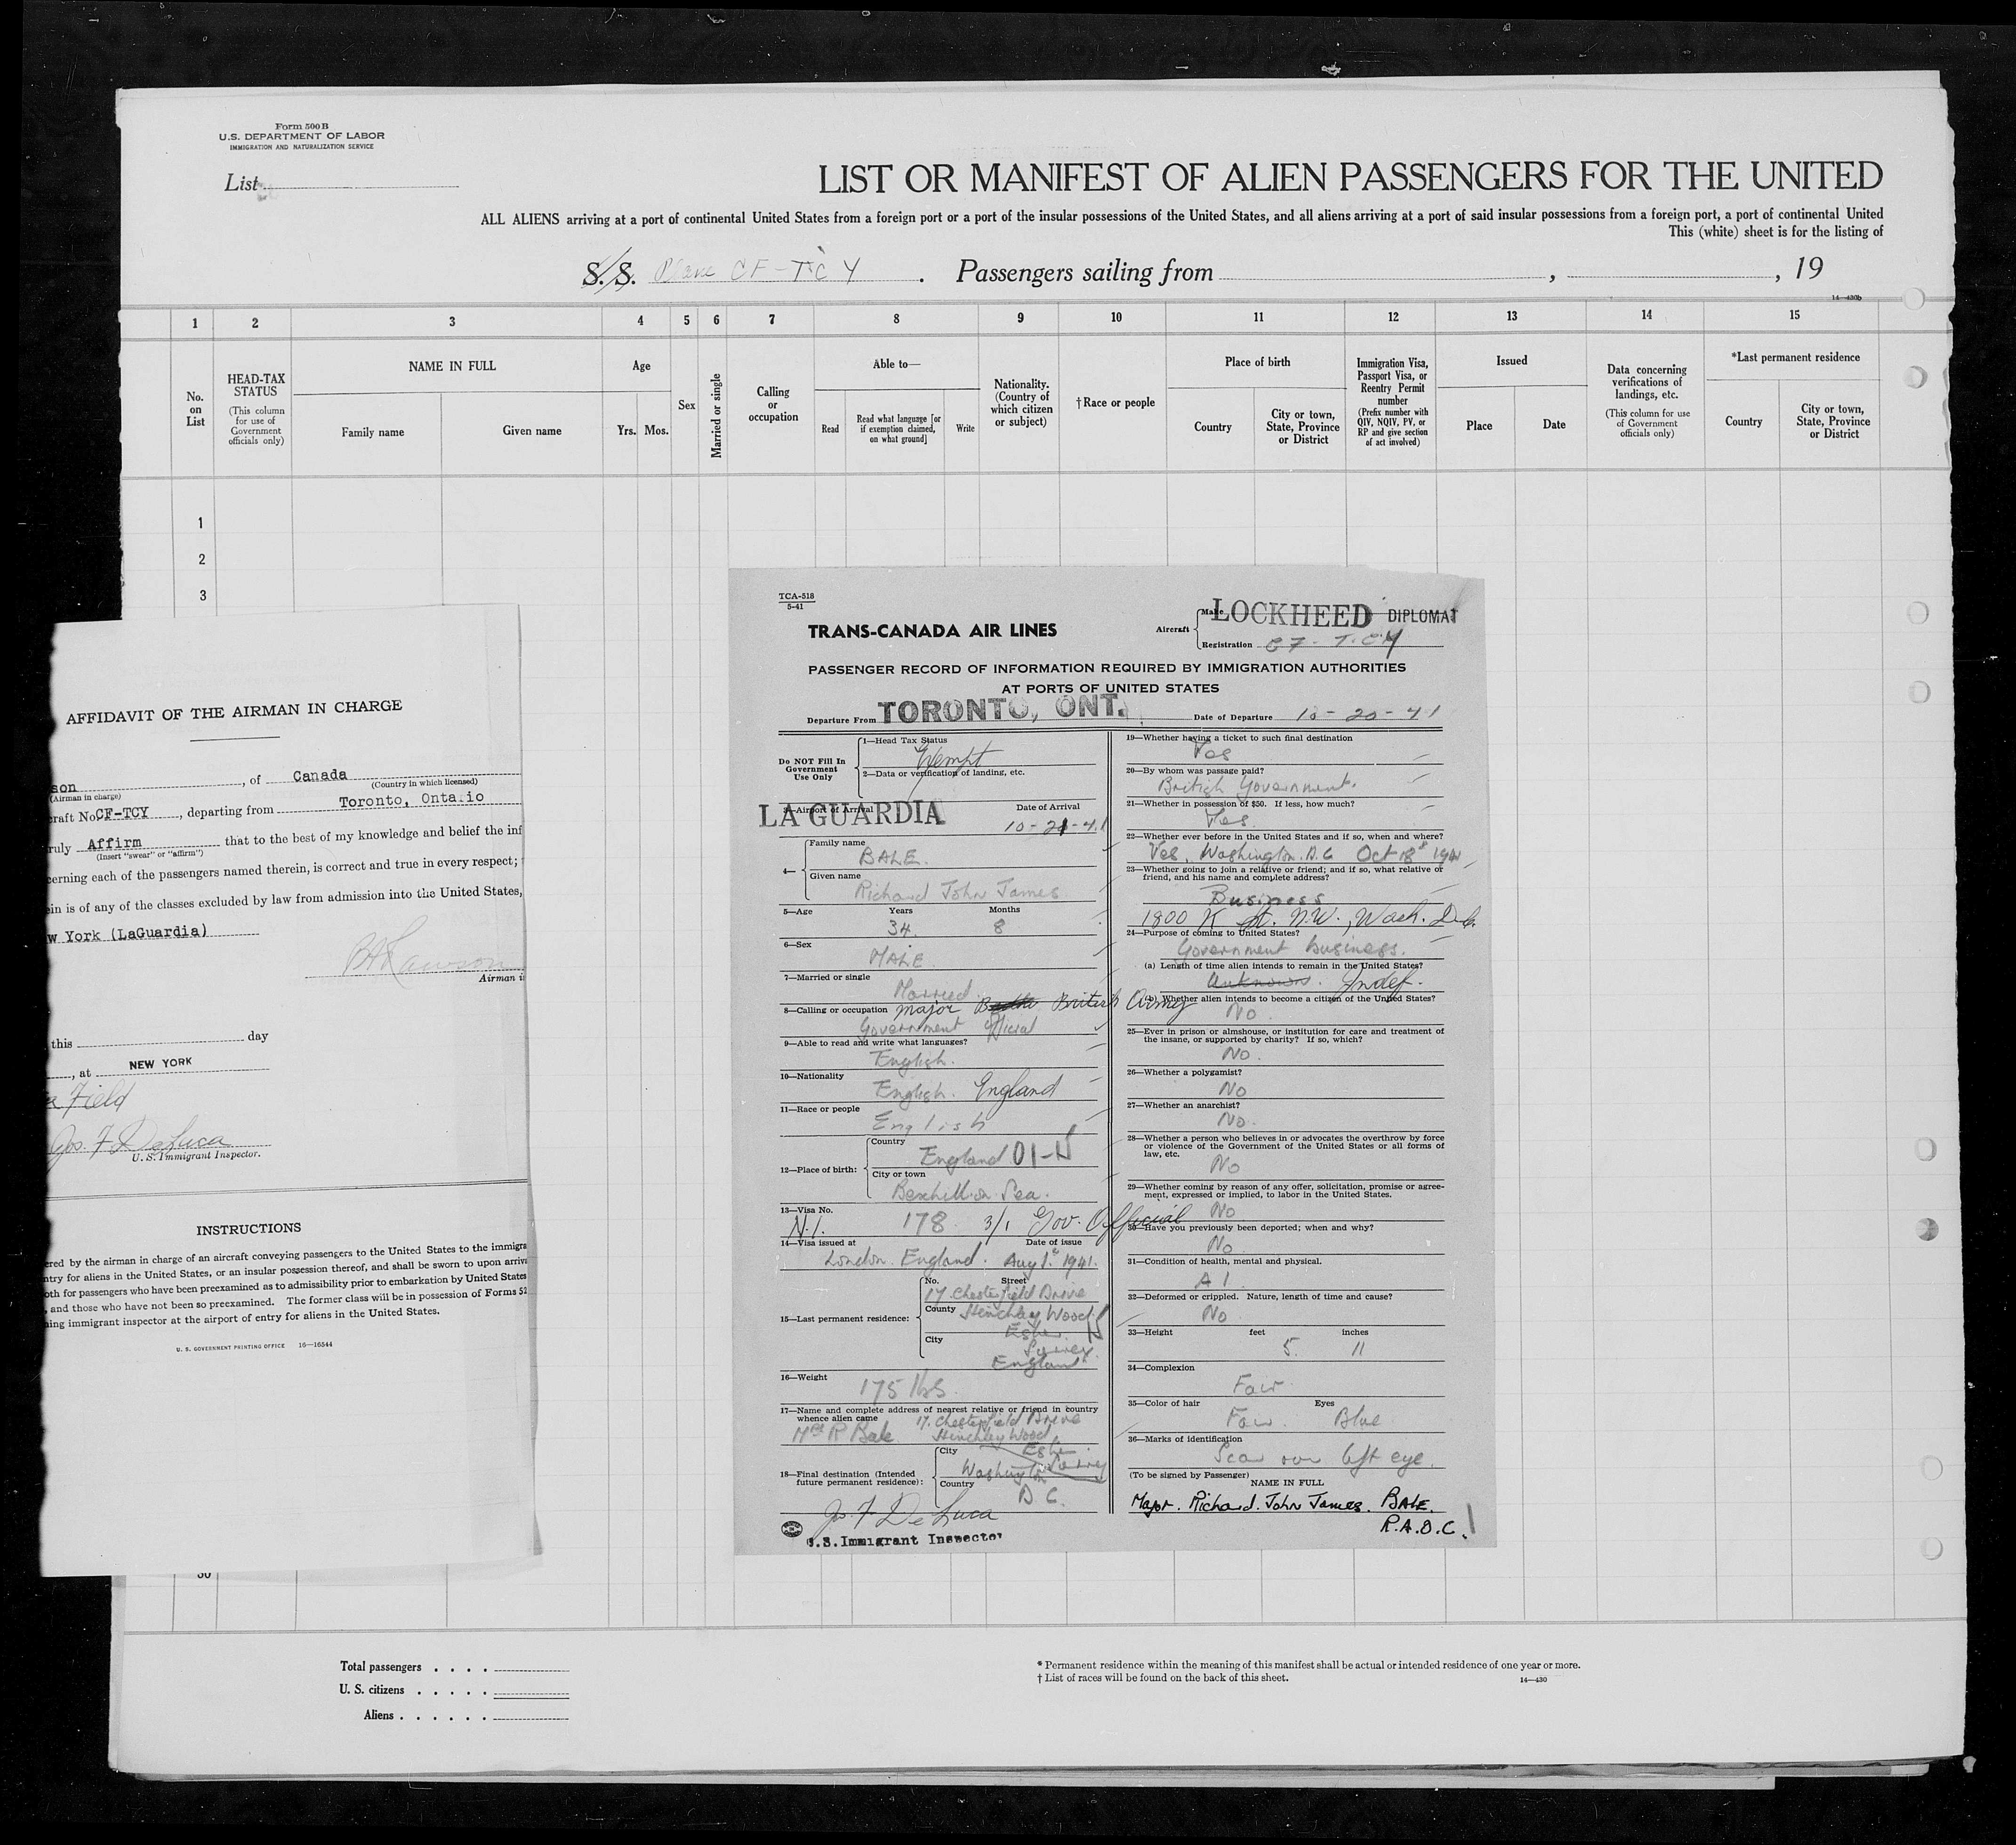 Form 500 B
U.S. DEPARTMENT OF LABOR
IMMIGRATION AND NATURALIZATION SERVICE
List
LIST OR MANIFEST OF ALIEN PASSENGERS FOR THE UNITED
ALL ALIENS arriving at a port of continental United States from a foreign port or a port of the insular possessions of the United States, and all aliens arriving at a port of said insular possessions from a foreign port, a port of continental United
This (white) sheet is for the listing of
S.S. Plane CF-TCY. Passengers sailing from , , 19
14—430b
1 2 3 4 5 6 7 8 9 10 11 12 13 14 15
No. on List
HEAD-TAX STATUS
(This column for use of Government officials only)
NAME IN FULL
Family name
Given name
Age
Yrs. Mos.
Sex
Married or single
Calling or occupation
Able to—
Read
Read what language [or if exemption claimed, on what ground]
Write
Nationality. (Country of which citizen or subject)
†Race or people
Place of birth
Country
City or town, State, Province or District
Immigration Visa, Passport Visa, or Reentry Permit number
(Prefix number with QIV, NQIV, PV, or RP and give section of act involved)
Issued
Place
Date
Data concerning verifications of landings, etc.
(This column for use of Government officials only)
*Last permanent residence
Country
City or town, State, Province or District
1
2
3
AFFIDAVIT OF THE AIRMAN IN CHARGE
son , of Canada
(Airman in charge) (Country in which licensed)
craft No CF-TCY , departing from Toronto, Onta.io
ruly Affirm that to the best of my knowledge and belief the inf
(Insert "swear" or "affirm")
cerning each of the passengers named therein, is correct and true in every respect;
ein is of any of the classes excluded by law from admission into the United States,
w York (LaGuardia)
Airman i
this day
, at NEW YORK
a Field
Jos. F. DeLuca
U.S. Immigrant Inspector.
INSTRUCTIONS
ered by the airman in charge of an aircraft conveying passengers to the United States to the immigra
ntry for aliens in the United States, or an insular possession thereof, and shall be sworn to upon arriva
oth for passengers who have been preexamined as to admissibility prior to embarkation by United States
, and those who have not been so preexamined. The former class will be in possession of Forms 52
ning immigrant inspector at the airport of entry for aliens in the United States.
U. S. GOVERNMENT PRINTING OFFICE 16—16544
TCA-518
5-41
TRANS-CANADA AIR LINES
Aircraft
Make LOCKHEED DIPLOMAT
Registration CF-T.CY
PASSENGER RECORD OF INFORMATION REQUIRED BY IMMIGRATION AUTHORITIES
AT PORTS OF UNITED STATES
Departure From TORONTO, ONT. Date of Departure 10-20-41
Do NOT Fill In Government Use Only
1—Head Tax Status
Exempt
2—Data or verification of landing, etc.
3—Airport of Arrival Date of Arrival
LA GUARDIA 10-21-41
4— Family name
BALE.
Given name
Richard John James
5—Age Years Months
34. 8
6—Sex
MALE
7—Married or single
Married
8—Calling or occupation Major British Army
Government Official
9—Able to read and write what languages?
English.
10—Nationality
English. England
11—Race or people
English
12—Place of birth: Country
England 01-N
City or town
Bexhill on Sea.
13—Visa No.
N.I. 178 3/1 Gov. Official
14—Visa issued at Date of issue
London England. Aug 1st 1941.
15—Last permanent residence: No. Street
17 Chesterfield Drive
County Hinchley Wood
Esher.
City Surrey.
England
16—Weight
175 lbs.
17—Name and complete address of nearest relative or friend in country whence alien came
17. Chesterfield Drive
Mrs R Bale. Hinchley Wood
Esher.
Surrey
18—Final destination (Intended future permanent residence): City
Washington
Country
D C.
Jos. F. DeLuca
U.S. Immigrant Inspector
19—Whether having a ticket to such final destination
Yes
20—By whom was passage paid?
British Government.
21—Whether in possession of $50. If less, how much?
Yes.
22—Whether ever before in the United States and if so, when and where?
Yes, Washington. D.C. Oct 18th 1941
23—Whether going to join a relative or friend; and if so, what relative or friend, and his name and complete address?
Business
1800 K St. N.W., Wash. D.C.
24—Purpose of coming to United States?
Government business.
(a) Length of time alien intends to remain in the United States?
Unknown. Indef.
(b) Whether alien intends to become a citizen of the United States?
No.
25—Ever in prison or almshouse, or institution for care and treatment of the insane, or supported by charity? If so, which?
No.
26—Whether a polygamist?
No
27—Whether an anarchist?
No.
28—Whether a person who believes in or advocates the overthrow by force or violence of the Government of the United States or all forms of law, etc.
No
29—Whether coming by reason of any offer, solicitation, promise or agreement, expressed or implied, to labor in the United States.
No
30—Have you previously been deported; when and why?
No
31—Condition of health, mental and physical.
A 1
32—Deformed or crippled. Nature, length of time and cause?
No
33—Height feet inches
5. 11
34—Complexion
Fair
35—Color of hair Eyes
Fair. Blue
36—Marks of identification
Scar over left eye.
(To be signed by Passenger)
NAME IN FULL
Major. Richard. John James. BALE.
R.A.O.C.
30
Total passengers
U. S. citizens
Aliens
* Permanent residence within the meaning of this manifest shall be actual or intended residence of one year or more.
† List of races will be found on the back of this sheet.
14—430